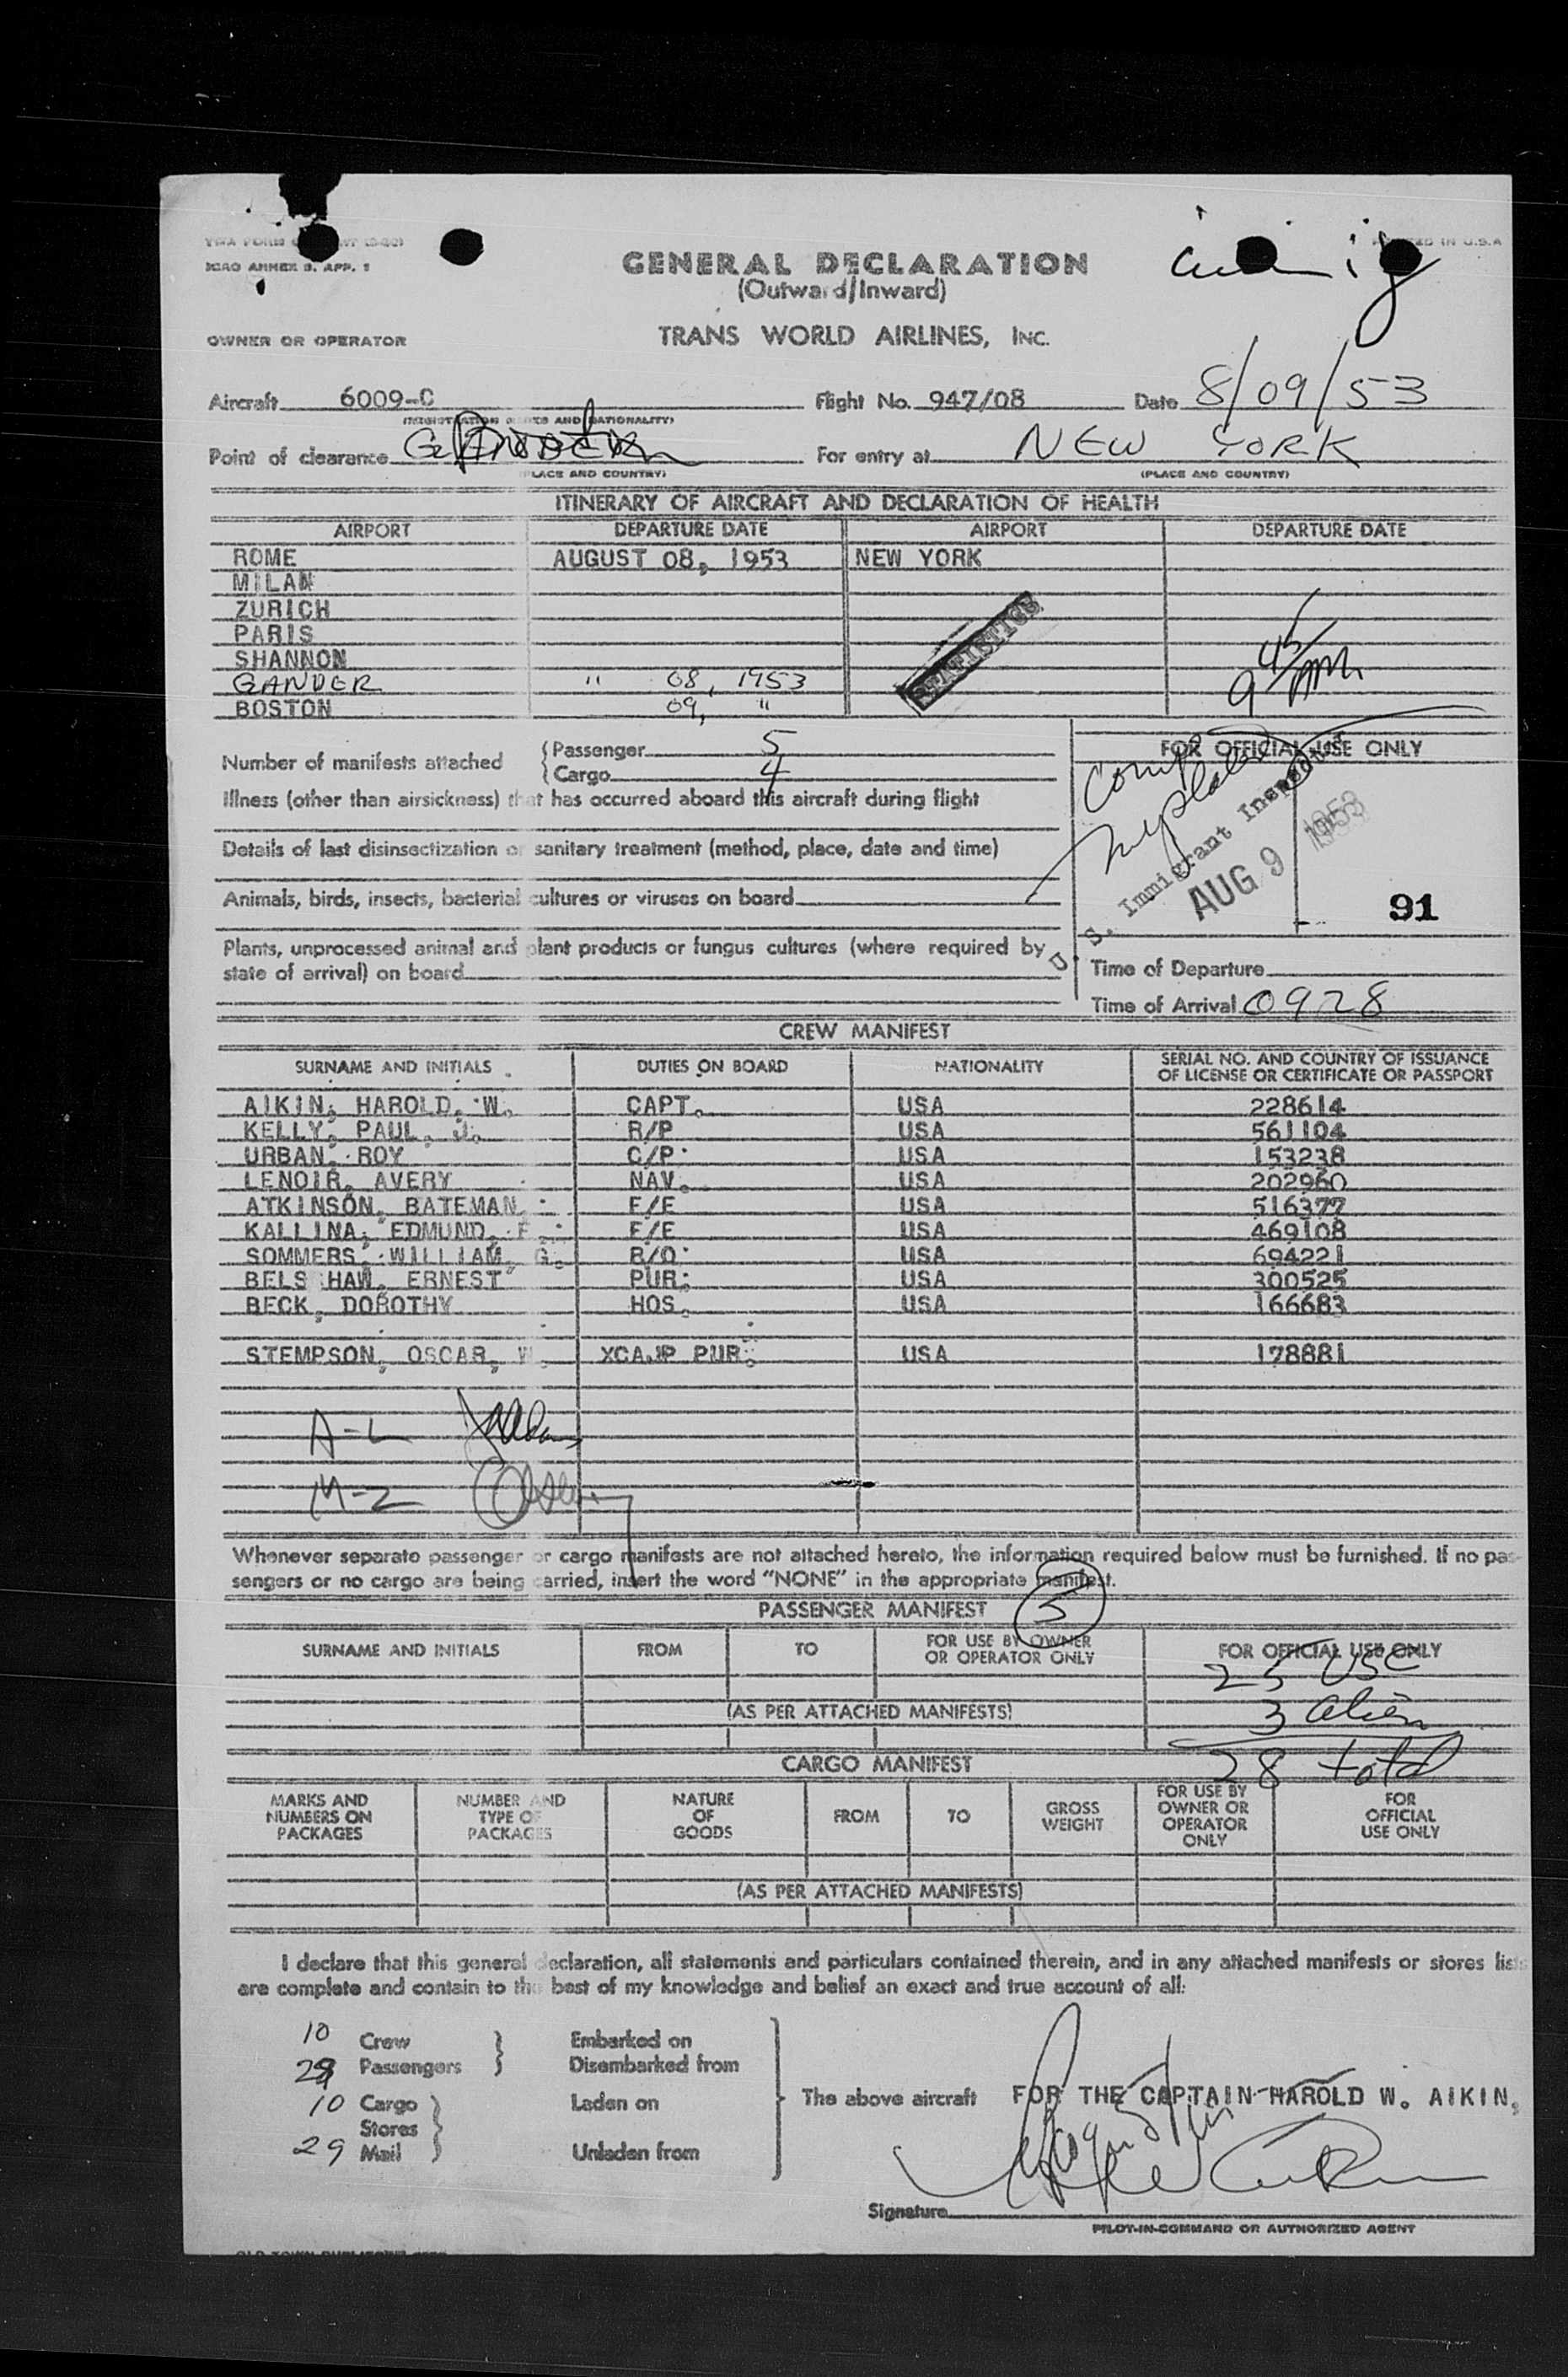 ICAO ANNEX 9, APP. 1
GENERAL DECLARATION
(Outward/Inward)
OWNER OR OPERATOR
TRANS WORLD AIRLINES, INC.
Aircraft 6009-C Flight No. 947/08 Date 8/09/53
(REGISTRATION MARKS AND NATIONALITY)
Point of clearance GANDER For entry at NEW YORK
(PLACE AND COUNTRY) (PLACE AND COUNTRY)
ITINERARY OF AIRCRAFT AND DECLARATION OF HEALTH
AIRPORT DEPARTURE DATE AIRPORT DEPARTURE DATE
ROME AUGUST 08, 1953 NEW YORK
MILAN
ZURICH
PARIS
SHANNON
GANDER " 08, 1953
BOSTON 09, "
STATISTICS
9 45/AM
Number of manifests attached
Passenger 5
Cargo 4
Illness (other than airsickness) that has occurred aboard this aircraft during flight
Details of last disinsectization or sanitary treatment (method, place, date and time)
Animals, birds, insects, bacterial cultures or viruses on board
Plants, unprocessed animal and plant products or fungus cultures (where required by
state of arrival) on board
FOR OFFICIAL USE ONLY
U. S. Immigrant Inspector
AUG 9 1953
91
Time of Departure
Time of Arrival 0928
CREW MANIFEST
SURNAME AND INITIALS DUTIES ON BOARD NATIONALITY SERIAL NO. AND COUNTRY OF ISSUANCE
OF LICENSE OR CERTIFICATE OR PASSPORT
AIKIN, HAROLD, W. CAPT. USA 228614
KELLY, PAUL, J. R/P USA 561104
URBAN, ROY C/P USA 153238
LENOIR, AVERY NAV. USA 202960
ATKINSON, BATEMAN F/E USA 516377
KALLINA, EDMUND, F. F/E USA 469108
SOMMERS, WILLIAM, G. R/O USA 694221
BELSHAW, ERNEST PUR. USA 300525
BECK, DOROTHY HOS. USA 166683
STEMPSON, OSCAR, W. XCAJP PUR. USA 178881
A-L
M-Z
Whenever separate passenger or cargo manifests are not attached hereto, the information required below must be furnished. If no pas-
sengers or no cargo are being carried, insert the word "NONE" in the appropriate manifest.
PASSENGER MANIFEST 5
SURNAME AND INITIALS FROM TO FOR USE BY OWNER
OR OPERATOR ONLY FOR OFFICIAL USE ONLY
25 USC
(AS PER ATTACHED MANIFESTS) 3 alien
28 total
CARGO MANIFEST
MARKS AND
NUMBERS ON
PACKAGES
NUMBER AND
TYPE OF
PACKAGES
NATURE
OF
GOODS
FROM
TO
GROSS
WEIGHT
FOR USE BY
OWNER OR
OPERATOR
ONLY
FOR
OFFICIAL
USE ONLY
(AS PER ATTACHED MANIFESTS)
I declare that this general declaration, all statements and particulars contained therein, and in any attached manifests or stores lists
are complete and contain to the best of my knowledge and belief an exact and true account of all:
10 Crew Embarked on
Passengers Disembarked from
10 Cargo Laden on The above aircraft FOR THE CAPTAIN HAROLD W. AIKIN,
Stores
29 Mail Unladen from
Signature
PILOT-IN-COMMAND OR AUTHORIZED AGENT